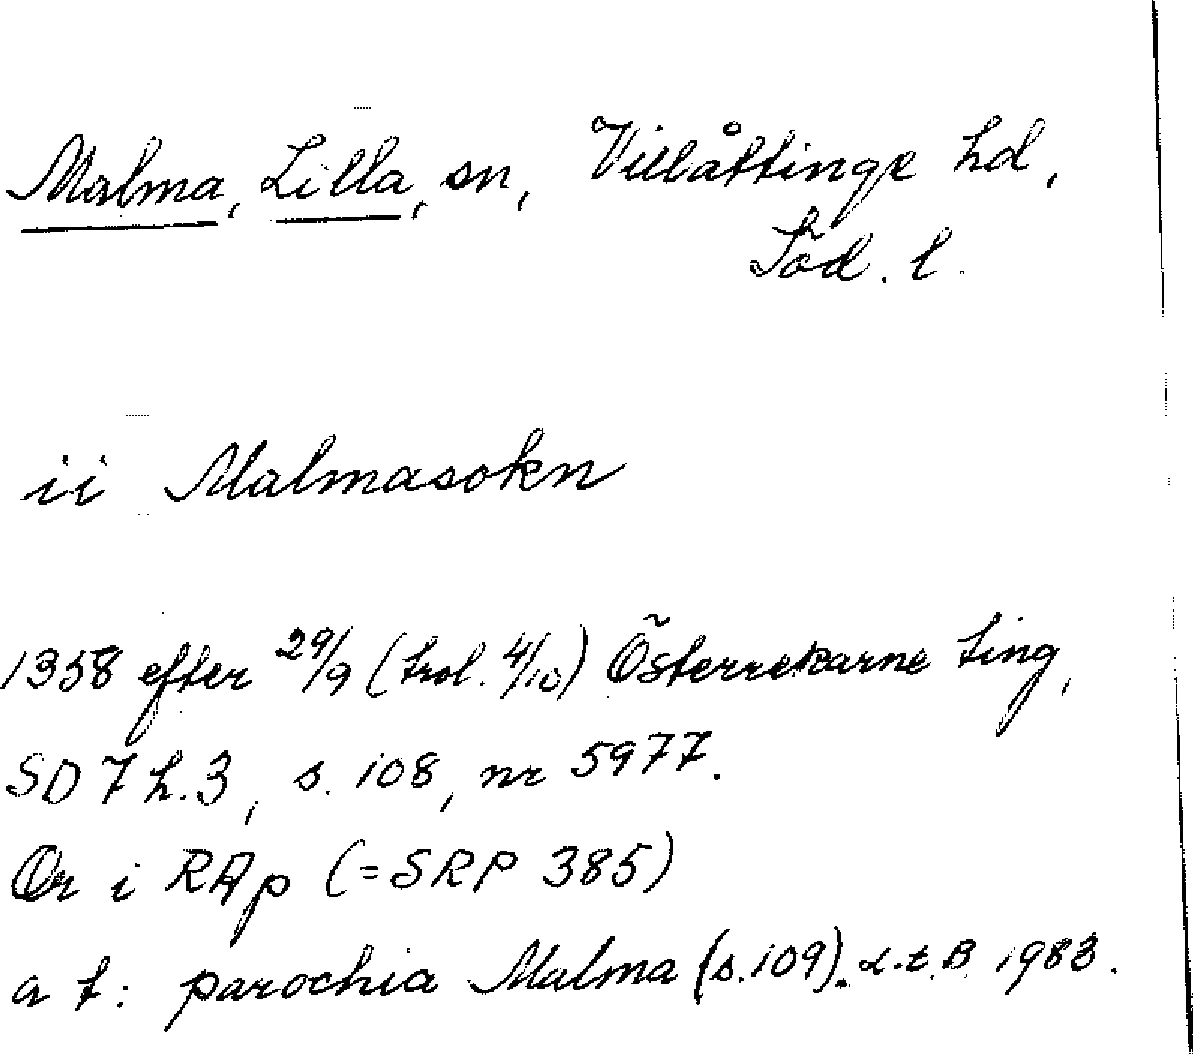 Malma, Lilla, sn, Villåttinge hd,
Söd. l.
ii Malmasokn
1358 efter 29/9 (trol. 4/10) Österrekarne ting,
SD 7 h.3, s. 108, nr 5977.
Or i RAp (=SRP 385)
a t: parochia Malma (s.109). L.t.B. 1983.